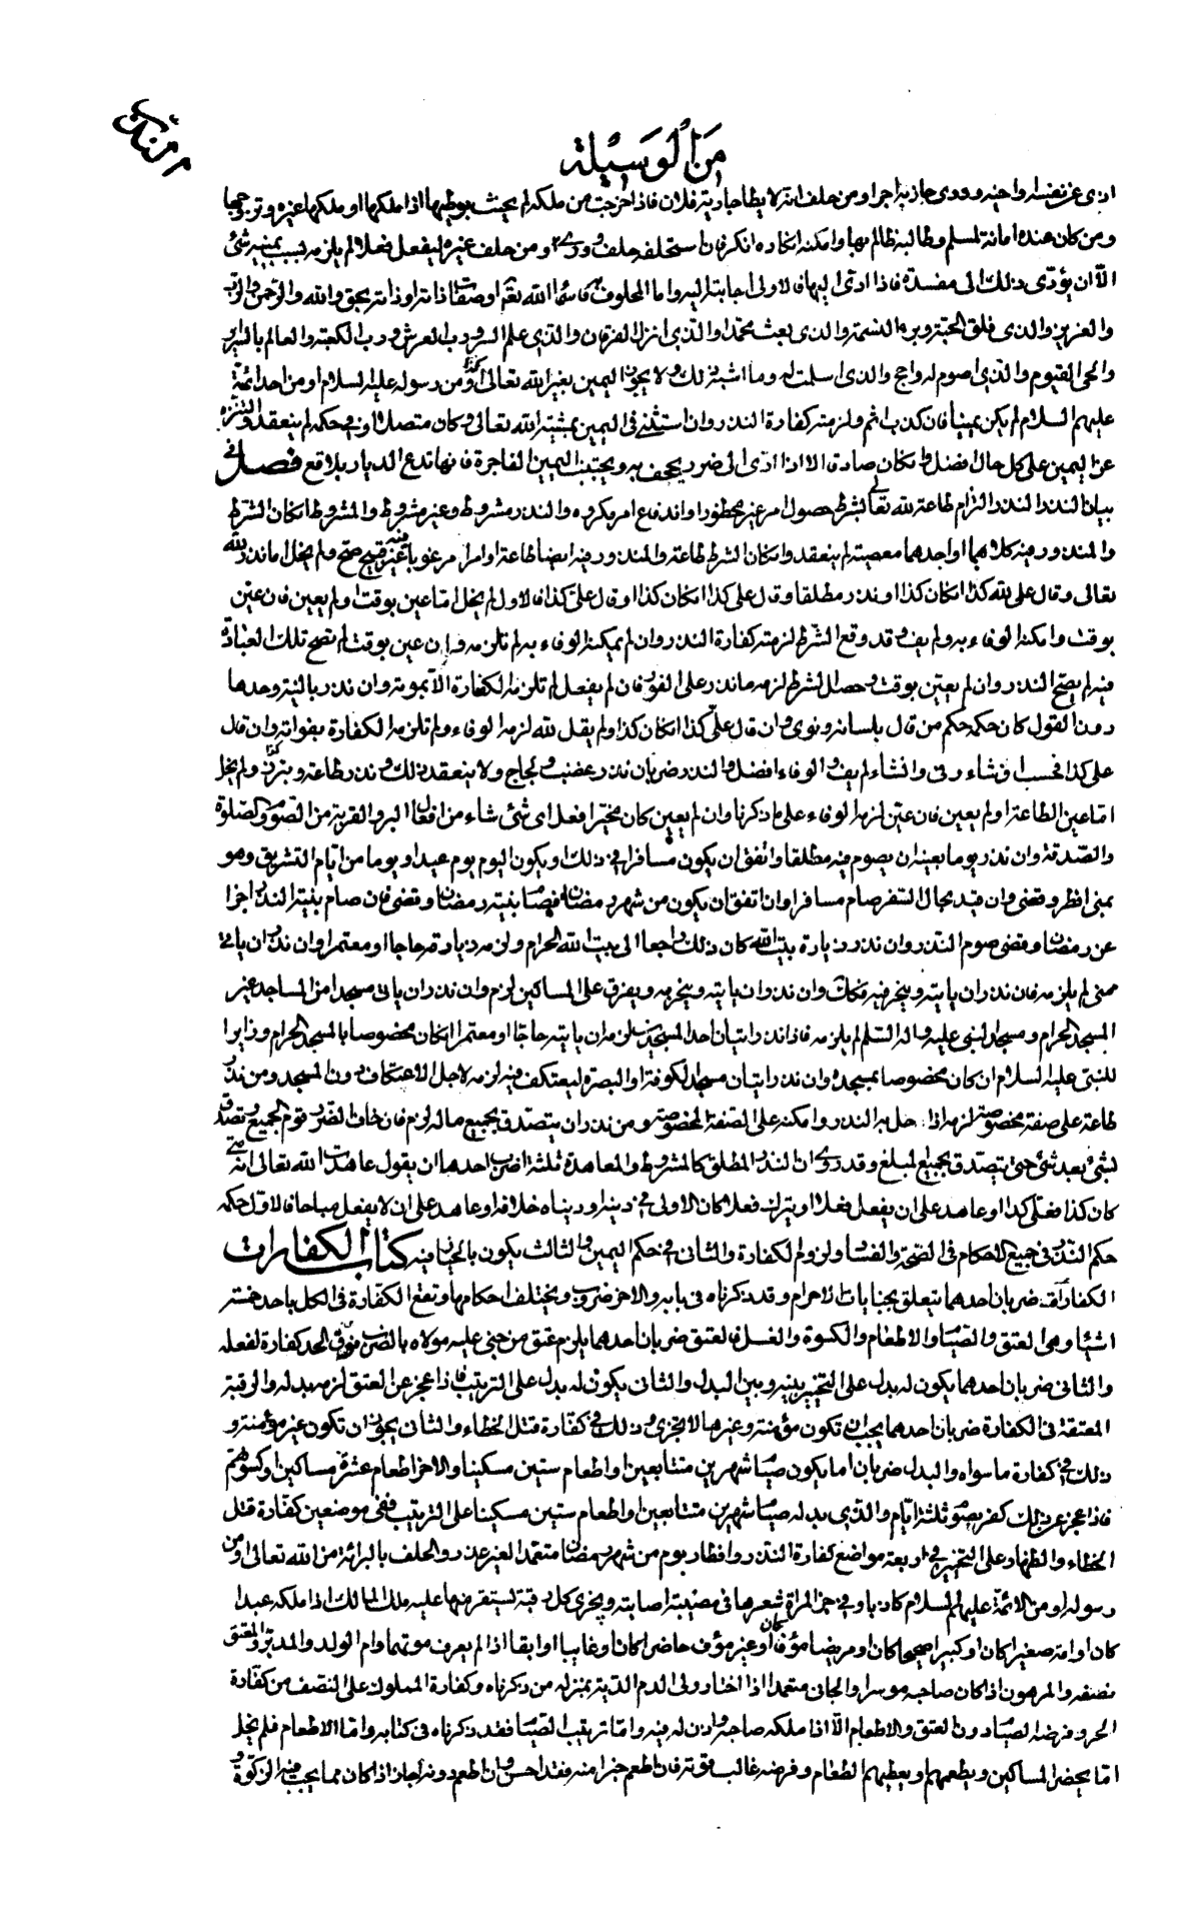 النذر
من الوسيلة
اذى عن نفسه او اخيه ووری جاز به اجرا ومن حلف انه لا يطأ جارية فلان فاذا خرجت من ملكه لم يحنث بوطيها اذا ملكها او ملكها غيره وتزوجها
ومن كان عنده امانة لمسلم وطالبه ظالم بها وامكنه انكاره انكر فان استحلفه حلف وورى ومن حلف غيره ليفعل فعلا لم يلزمه بسبب يمينه شئ
الا ان يؤدى ذلك الى مفسدة فاذا ادى اليها فالاولى اجابته اليه واما المحلوف به فاسماء الله تعالى او صفات ذاته او ذاته بحق والله والرحمن والرب
والعزيز والذى فلق الحبة وبرء النسمة والذى بعث محمدا والذى انزل الفرقان والذى علم السر ورب العرش ورب الكعبة والعالم بالسر
والحى القيوم والذى اصوم له واحج والذى اسلمت له وما اشبه ذلك ولا يجوز اليمين بغير الله تعالى ومن رسوله عليه السلام او من احد ائمة
عليهم السلام لم يكن يمينا فان كذب اثم ولزمته كفارة النذر وان استثنى فى اليمين بمشية الله تعالى وكان متصلا او فى حكمه لم ينعقد والتنزه
عن اليمين على كل حال افضل وان كان صادقا الا اذا ادى الى ضرر يجحف به ويجتنب اليمين الفاجرة فانها تدع الديار بلاقع فصل فى
بيان النذر النذر التزام طاعة لله تعالى بشرط حصول امر غير محظور او اندفاع امر مكروه والنذر مشروط وغير مشروط والمشروط ان كان الشرط
والمنذور فيه كلاهما او احدهما معصية لم ينعقد وان كان الشرط طاعة والمنذور فيه ايضا طاعة او امرا مرغوبا فيه غير قبيح صح ولم يخل اما نذر لله
تعالى وقال على لله كذا ان كان كذا او نذر مطلقا وقال على كذا ان كان كذا او قال على كذا فالاول لم يخل اما عين بوقت او لم يعين فان عين
بوقت وامكنه الوفاء به ولم يف وقد وقع الشرط لزمته كفارة النذر وان لم يمكنه الوفاء به لم تلزمه وان عين بوقت لم تصح تلك العبادة
فيه لم يصح النذر وان لم يعين بوقت وحصل الشرط لزمه ما نذر على الفور فان لم يفعل لم تلزمه الكفارة الا بموته وان نذر بالنية وحدها
دون القول كان حكمه حكم من قال بلسانه ونوى وان قال على كذا ان كان كذا ولم يقل لله لزمه الوفاء ولم تلزمه الكفارة بفواته وان قال
على كذا فحسب ان شاء وفى وان شاء لم يف والوفاء افضل والنذر ضربان نذر غضب ولجاج ولا ينعقد ذلك ونذر طاعة وتبرر ولم يخل
اما عين الطاعة او لم يعين فان عين لزمه الوفاء على ما ذكرنا وان لم يعين كان مخيرا فعل اى شئ شاء من افعال البر والقربة من الصوم والصلوة
والصدقة وان نذر يوما بعينه ان يصوم فيه مطلقا واتفق ان يكون مسافرا فى ذلك او يكون اليوم يوم عيد او يوما من ايام التشريق وهو
بمنى افطر وقضى وان قيد بحال السفر صام مسافرا وان اتفق ان يكون من شهر رمضان فصام بنية رمضان وقضى فان صام بنية النذر اجزا
عن رمضان وقضى صوم النذر وان نذر زيارة بيت الله كان ذلك راجعا الى بيت الله الحرام ولزمه زيارته حاجا او معتمرا وان نذر ان ياتى
منى لم يلزمه فان نذر ان ياتيه وينحر فيه فكذلك وان نذر ان ياتيه وينحر به ويفرق على المساكين لزم وان نذر ان ياتى مسجدا من المساجد غير
المسجد الحرام ومسجد النبى عليه واله السلم لم يلزمه فاذا نذر اتيان احد المسجدين لزمه ان ياتيه حاجا او معتمرا ان كان مخصوصا بالمسجد الحرام وزايرا
للنبى عليه السلام ان كان مخصوصا بمسجده وان نذر اتيان مسجد الكوفة او البصرة ليعتكف فيه لزمه لاجل الاعتكاف دون المسجد ومن نذر
طاعة على صفة مخصوصة لزمه اذا حل به النذر وامكنه على الصفة المخصوصة ومن نذر ان يتصدق بجميع ماله لزم فان خاف الضرر قوم الجميع وتصدق
بشئ بعد شئ حتى يتصدق بجميع المبلغ وقد روى ان النذر المطلق كالمشروط والمعاهدة ثلثة اضرب احدها ان يقول عاهدت الله تعالى انه متى
كان كذا فعلى كذا او عاهد على ان يفعل فعلا او يترك فعلا كان الاولى فى دينه او دنياه خلافه او عاهد على ان لا يفعل مباحا فالاول حكمه
حكم النذر فى جميع الاحكام فى الصحة والفساد ولزوم الكفارة والثانى فى حكم اليمين والثالث يكون بالخيار فيه كتاب الكفارات
الكفارات ضربان احدهما يتعلق بجنايات الاحرام وقد ذكرناه فى بابه والاخر ضروب ويختلف احكامها وتقع الكفارة فى الكل باحد خمسة
اشياء وهى العتق والصيام والاطعام والكسوة والغسل فالعتق ضربان احدهما يلزم عتق من جنى عليه مولاه بالضرب فوق الحد كفارة لفعله
والثانى ضربان احدهما يكون له بدل على التخيير بينه وبين البدل والثانى يكون له بدل على الترتيب فاذا عجز عن العتق لزمه بدله والرقبة
المعتقة فى الكفارة ضربان احدهما يجب ان تكون مؤمنة وغيرها لا يجزى وذلك فى كفارة قتل الخطاء والثانى يجوز ان تكون غير مؤمنة و
ذلك فى كفارة ما سواه والبدل ضربان اما يكون صيام شهرين متتابعين او اطعام ستين مسكينا والاخر اطعام عشرة مساكين او كسوتهم
فاذا عجز عن ذلك كفر بصوم ثلثة ايام والذى بدله صيام شهرين متتابعين او اطعام ستين مسكينا على الترتيب ففى موضعين كفارة قتل
الخطاء والظهار وعلى التخيير فى اربعة مواضع كفارة النذر وافطار يوم من شهر رمضان متعمدا لغير عذر والحلف بالبرائة من الله تعالى او من
رسوله او من الائمة عليهم السلام كاذبا وفى جز المراة شعرها فى مصيبة اصابته ويجزى كل رقبة يستقر منها عليه ملك المالك اذا ملكه عبدا
كان او امة صغيرا كان او كبيرا صحيحا كان او مريضا مؤفا كان او غير مؤف حاضرا كان او غايبا او ابقا اذا لم يعرف موتهما وام الولد والمدبر والمعتق
نصفه والمرهون اذا كان صاحبه موسرا والجانى متعمدا اذا اختار ولى الدم الدية بمنزله من ذكرناه وكفارة المملوك على النصف من كفارة
الحر وفرضه الصيام دون العتق والاطعام الا اذا ملكه صاحبه واذن له فيه واما ترتيب الصيام فقد ذكرناه فى كتابه واما الاطعام فلم يخل
اما يحضر المساكين ويطعمهم او يعطيهم الطعام وفرضه غالب قوته فان اطعم خيرا منه فقد احسن وان اطعم دونه جاز اذا كان مما يجب فيه الزكوة و